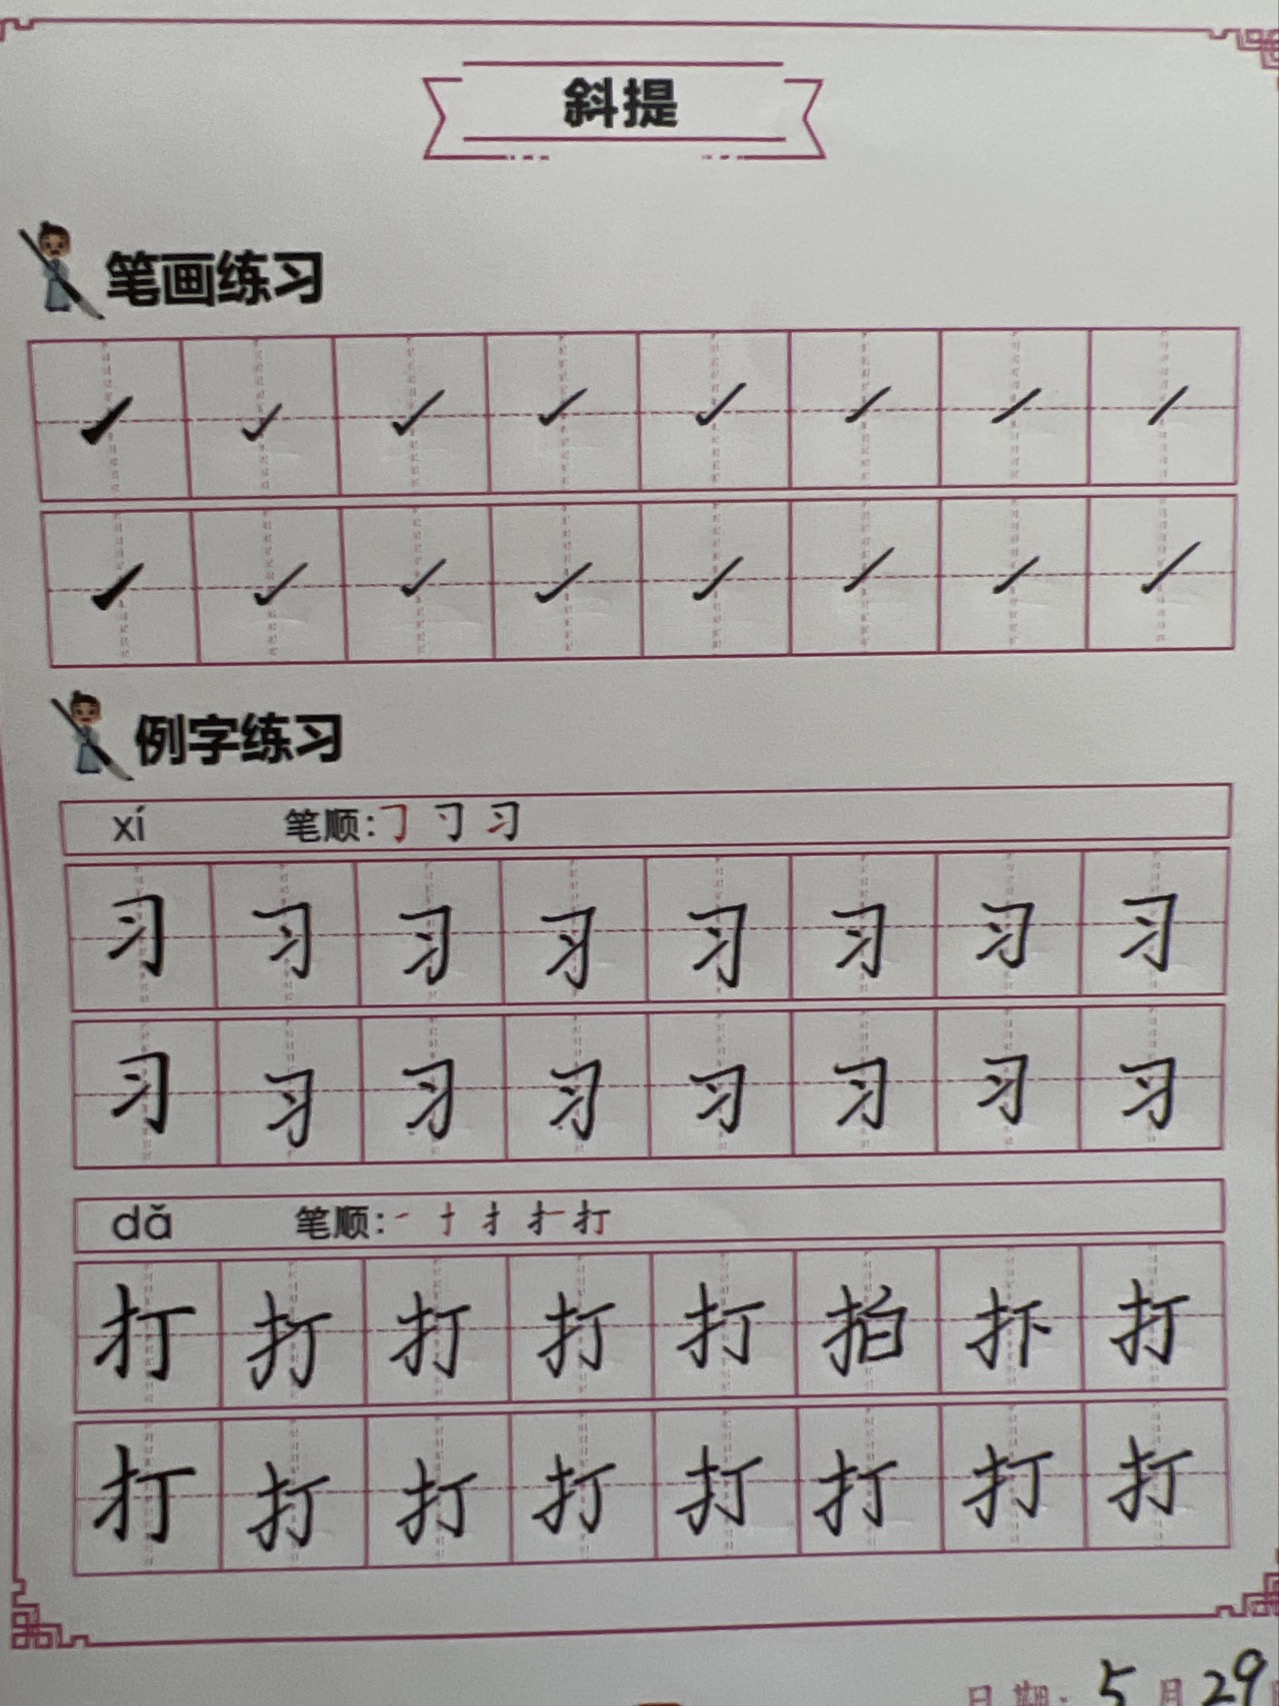 斜提
笔画练习
例字练习
xí 笔顺:
习 习 习 习 习 习 习 习
习 习 习 习 习 习 习 习
dǎ 笔顺:
打 打 打 打 打 拍 抃 打
打 打 打 打 打 打 打 打
日期: 5月29